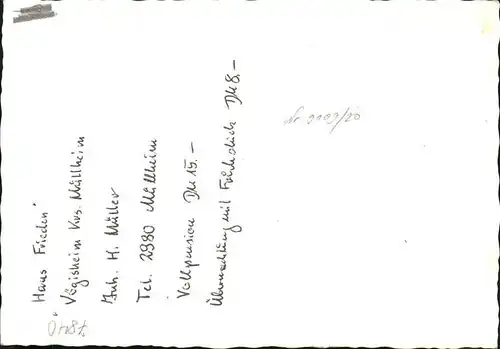 Haus Frieden"
Vögisheim Krs. Müllheim
Inh. H. Müller
Tel. 2980 Müllheim
Vollpension DM 15.-
Übernachtung mit Frühstück DM 8.-